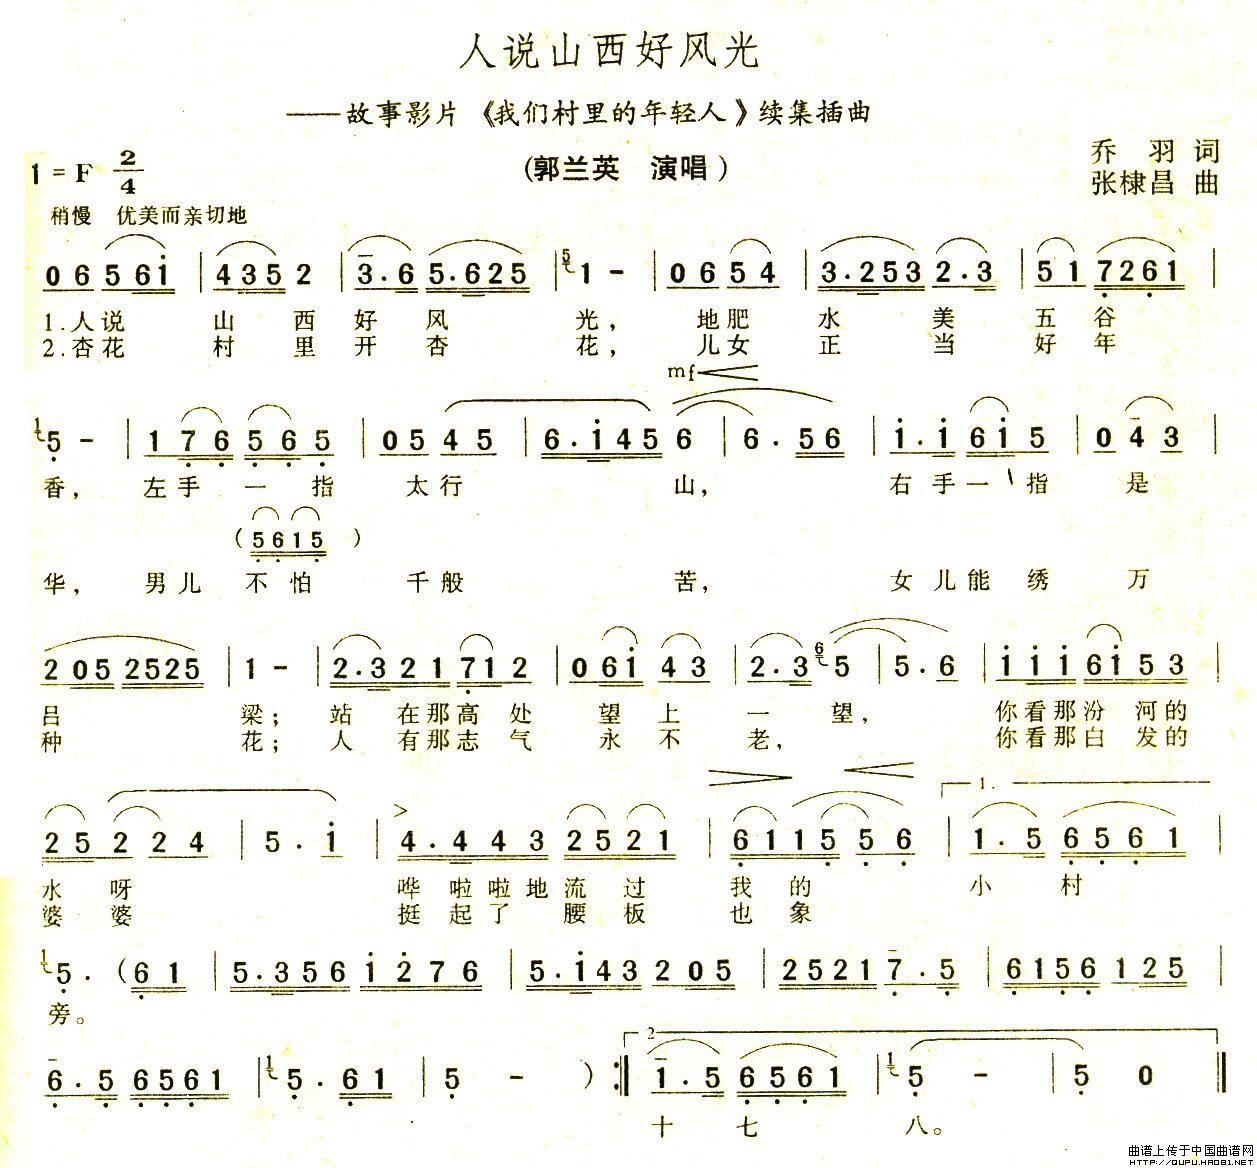 人说山西好风光
——故事影片《我们村里的年轻人》续集插曲
(郭兰英 演唱)
乔 羽 词
张棣昌 曲
1 = F 2/4
稍慢 优美而亲切地
0 6 5 6 i | 4 3 5 2 | 3 . 6 5 . 6 2 5 | 5 1 - | 0 6 5 4 | 3 . 2 5 3 2 . 3 | 5 1 7 2 6 1 |
1.人说 山 西 好 风 光， 地肥 水 美 五 谷
2.杏花 村 里 开 杏 花， 儿女 正 当 好 年
mf
1 5 - | 1 7 6 5 6 5 | 0 5 4 5 | 6 . i 4 5 6 | 6 . 5 6 | i . i 6 i 5 | 0 4 3 |
香， 左手 一 指 太行 山， 右手一 指 是
( 5 6 1 5 )
华， 男儿 不 怕 千般 苦， 女儿能 绣 万
2 0 5 2 5 2 5 | 1 - | 2 . 3 2 1 7 1 2 | 0 6 i 4 3 | 2 . 3 6 5 | 5 . 6 | i i i 6 i 5 3 |
吕 梁； 站 在那高 处 望 上 一 望， 你看那汾 河的
种 花； 人 有那志 气 永 不 老， 你看那白 发的
1.
2 5 2 2 4 | 5 . i | 4 . 4 4 3 2 5 2 1 | 6 1 1 5 5 6 | 1 . 5 6 5 6 1 |
水 呀 哗 啦啦地流 过 我 的 小 村
婆 婆 挺 起了 腰 板 也 象
1 5 . ( 6 1 | 5 . 3 5 6 i 2 7 6 | 5 . i 4 3 2 0 5 | 2 5 2 1 7 . 5 | 6 1 5 6 1 2 5 |
旁。
2
6 . 5 6 5 6 1 | 1 5 . 6 1 | 5 - ) :| 1 . 5 6 5 6 1 | 1 5 - | 5 0 ‖
十 七 八。
曲谱上传于中国曲谱网
HTTP://QUPU.HAO81.NET